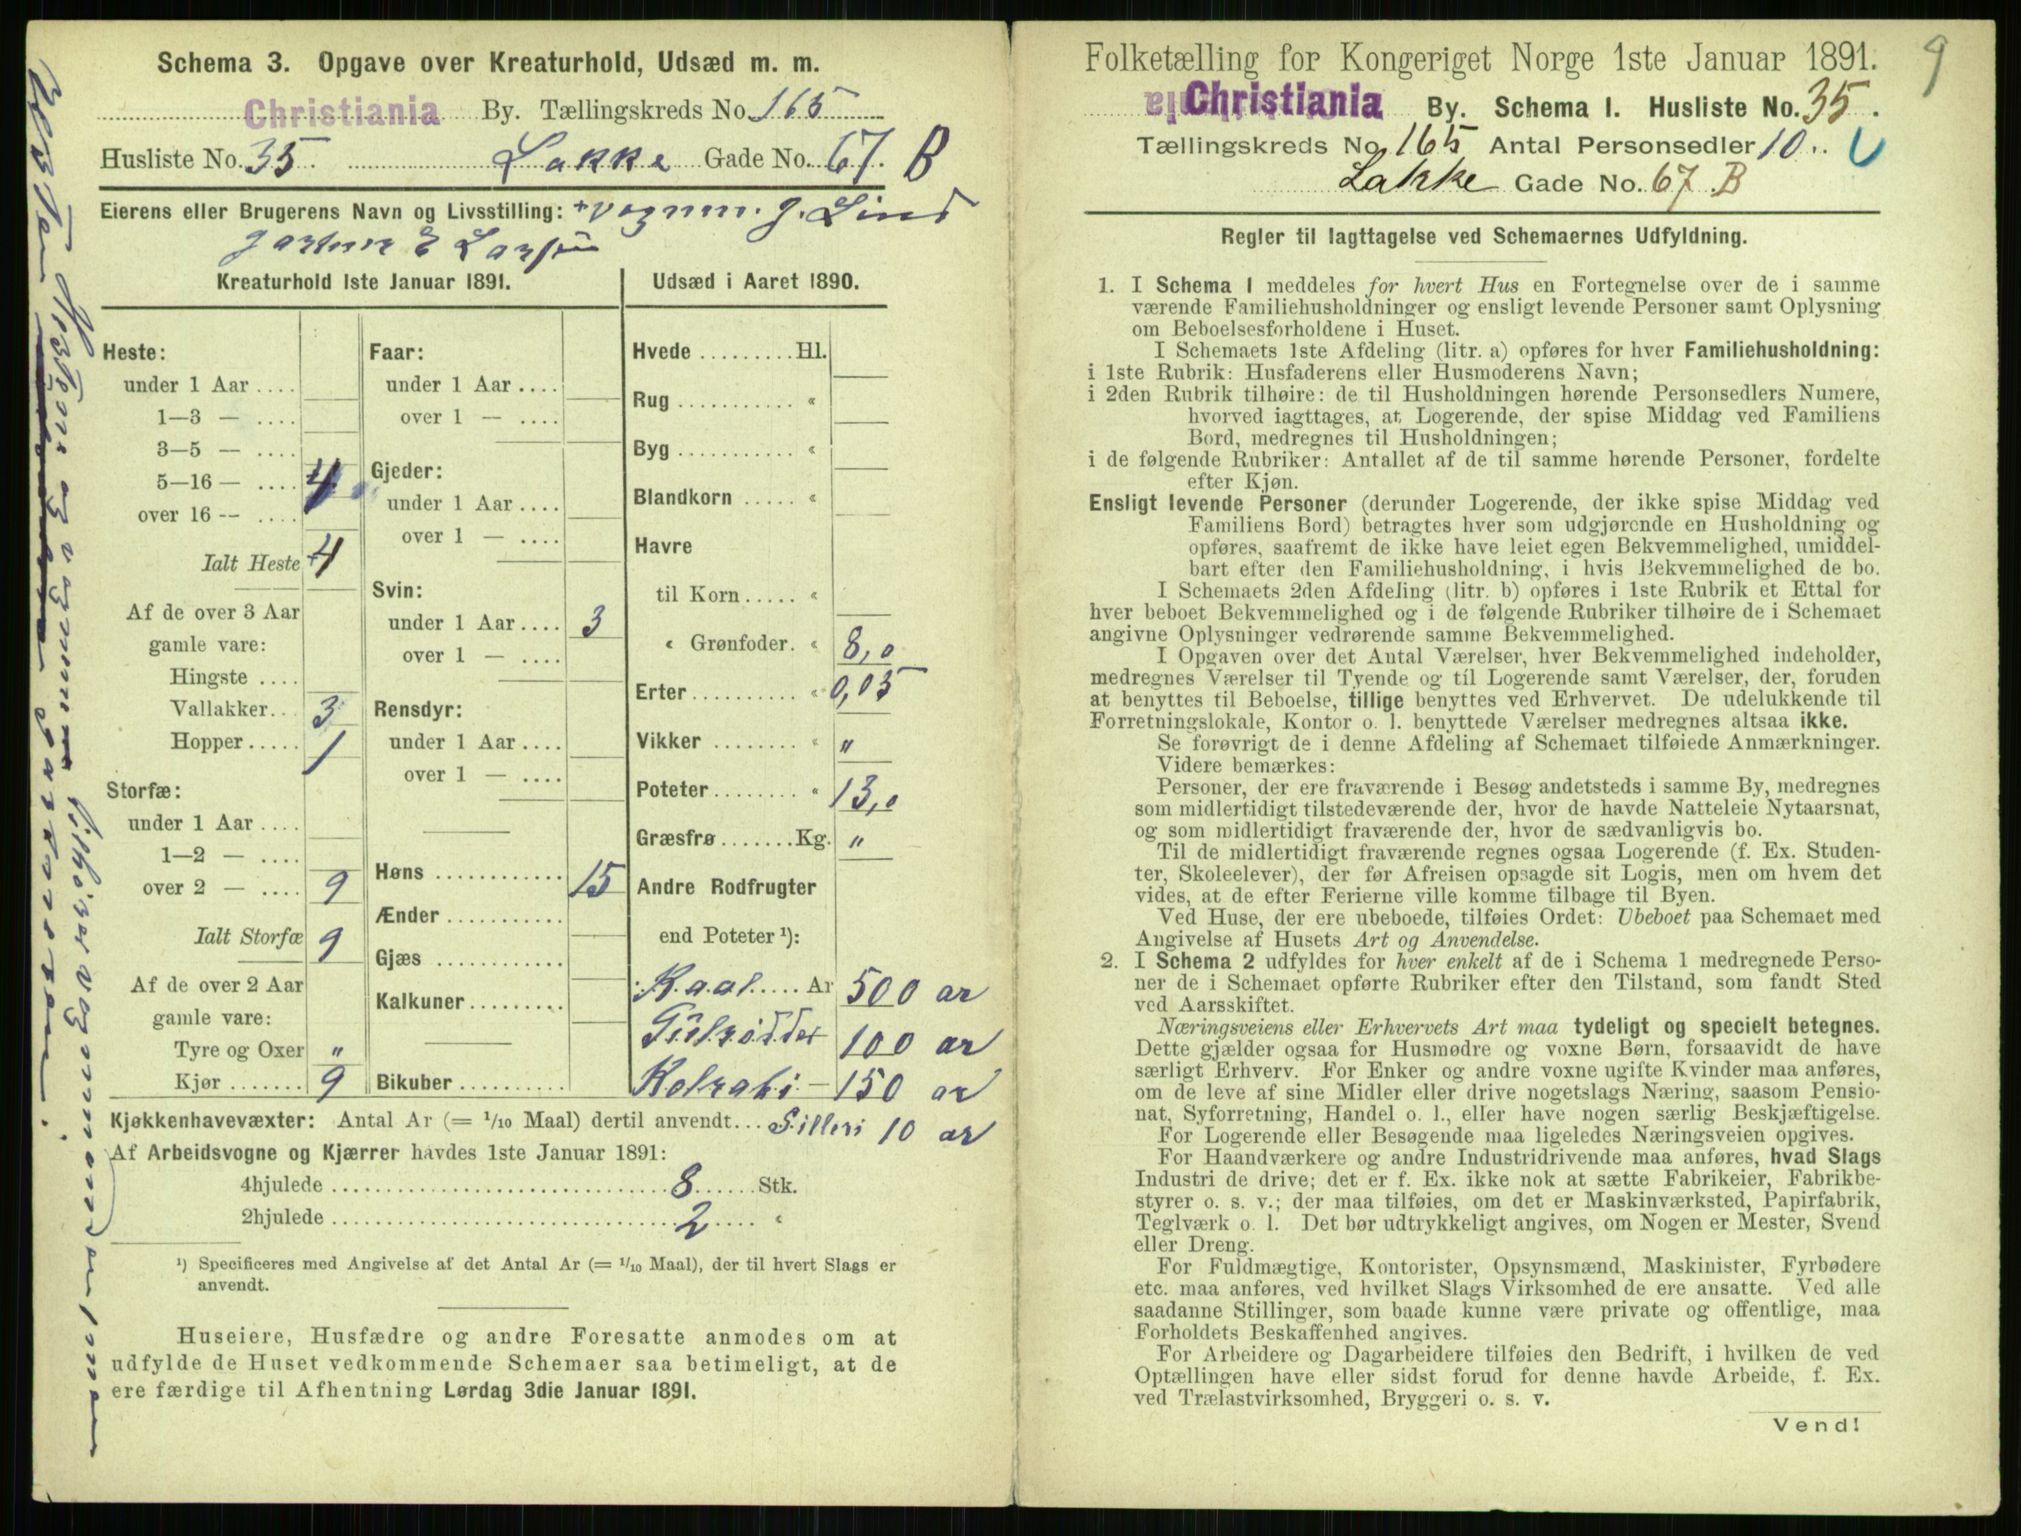 Schema 3. Opgave over Kreaturhold, Udsæd m. m.
Christiania By. Tællingskreds No. 165
Husliste No. 35. Lakke Gade No. 67 B
Eierens eller Brugerens Navn og Livsstilling: + vognm. G. Lind
Gartner E Larsen
Kreaturhold 1ste Januar 1891.
Heste:
under 1 Aar ....
1—3 — ....
3—5 — ....
5—16 — .... 4
over 16 — ....
Ialt Heste 4
Af de over 3 Aar
gamle vare:
Hingste ....
Vallakker... 3
Hopper ..... 1
Storfæ:
under 1 Aar ....
1—2 — ....
over 2 — .... 9
Ialt Storfæ 9
Af de over 2 Aar
gamle vare:
Tyre og Oxer "
Kjør ....... 9
Faar:
under 1 Aar ....
over 1 — ....
Gjeder:
under 1 Aar ....
over 1 — ....
Svin:
under 1 Aar .... 3
over 1 — ....
Rensdyr:
under 1 Aar ....
over 1 — ....
Høns ............ 15
Ænder ...........
Gjæs ............
Kalkuner .........
Bikuber ..........
Udsæd i Aaret 1890.
Hvede ......... Hl.
Rug ........... «
Byg ........... «
Blandkorn ..... «
Havre
til Korn ..... «
« Grønfoder. « 8,0
Erter .......... « 0,05
Vikker ........ « "
Poteter ........ « 13,0
Græsfrø ....... Kg. "
Andre Rodfrugter
end Poteter ¹):
Kaal .... Ar 500 ar
Gulrødder 100 ar
Kolrabi — 150 ar
Kjøkkenhavevæxter: Antal Ar (= 1/10 Maal) dertil anvendt... Silleri 10 ar
Af Arbeidsvogne og Kjærrer havdes 1ste Januar 1891:
4hjulede .............................. 8 ...... Stk.
2hjulede .............................. 2 ..... «
¹) Specificeres med Angivelse af det Antal Ar (= 1/10 Maal), der til hvert Slags er
anvendt.
Huseiere, Husfædre og andre Foresatte anmodes om at
udfylde de Huset vedkommende Schemaer saa betimeligt, at de
ere færdige til Afhentning Lørdag 3die Januar 1891.
Hestene og vognene tilhører vognmanden
Folketælling for Kongeriget Norge 1ste Januar 1891. 9
Christiania By. Schema 1. Husliste No. 35.
Tællingskreds No. 165 Antal Personsedler 10..
Lakke Gade No. 67 B
Regler til Iagttagelse ved Schemaernes Udfyldning.
1. I Schema 1 meddeles for hvert Hus en Fortegnelse over de i samme
værende Familiehusholdninger og ensligt levende Personer samt Oplysning
om Beboelsesforholdene i Huset.
I Schemaets 1ste Afdeling (litr. a) opføres for hver Familiehusholdning:
i 1ste Rubrik: Husfaderens eller Husmoderens Navn;
i 2den Rubrik tilhøire: de til Husholdningen hørende Personsedlers Numere,
hvorved iagttages, at Logerende, der spise Middag ved Familiens
Bord, medregnes til Husholdningen;
i de følgende Rubriker: Antallet af de til samme hørende Personer, fordelte
efter Kjøn.
Ensligt levende Personer (derunder Logerende, der ikke spise Middag ved
Familiens Bord) betragtes hver som udgjørende en Husholdning og
opføres, saafremt de ikke have leiet egen Bekvemmelighed, umiddel-
bart efter den Familiehusholdning, i hvis Bekvemmelighed de bo.
I Schemaets 2den Afdeling (litr. b) opføres i 1ste Rubrik et Ettal for
hver beboet Bekvemmelighed og i de følgende Rubriker tilhøire de i Schemaet
angivne Oplysninger vedrørende samme Bekvemmelighed.
I Opgaven over det Antal Værelser, hver Bekvemmelighed indeholder,
medregnes Værelser til Tyende og til Logerende samt Værelser, der, foruden
at benyttes til Beboelse, tillige benyttes ved Erhvervet. De udelukkende til
Forretningslokale, Kontor o. l. benyttede Værelser medregnes altsaa ikke.
Se forøvrigt de i denne Afdeling af Schemaet tilføiede Anmærkninger.
Videre bemærkes:
Personer, der ere fraværende i Besøg andetsteds i samme By, medregnes
som midlertidigt tilstedeværende der, hvor de havde Natteleie Nytaarsnat,
og som midlertidigt fraværende der, hvor de sædvanligvis bo.
Til de midlertidigt fraværende regnes ogsaa Logerende (f. Ex. Studen-
ter, Skoleelever), der før Afreisen opsagde sit Logis, men om hvem det
vides, at de efter Ferierne ville komme tilbage til Byen.
Ved Huse, der ere ubeboede, tilføies Ordet: Ubeboet paa Schemaet med
Angivelse af Husets Art og Anvendelse.
2. I Schema 2 udfyldes for hver enkelt af de i Schema 1 medregnede Perso-
ner de i Schemaet opførte Rubriker efter den Tilstand, som fandt Sted
ved Aarsskiftet.
Næringsveiens eller Erhvervets Art maa tydeligt og specielt betegnes.
Dette gjælder ogsaa for Husmødre og voxne Børn, forsaavidt de have
særligt Erhverv. For Enker og andre voxne ugifte Kvinder maa anføres,
om de leve af sine Midler eller drive nogetslags Næring, saasom Pensio-
nat, Syforretning, Handel o. l., eller have nogen særlig Beskjæftigelse.
For Logerende eller Besøgende maa ligeledes Næringsveien opgives.
For Haandværkere og andre Industridrivende maa anføres, hvad Slags
Industri de drive; det er f. Ex. ikke nok at sætte Fabrikeier, Fabrikbe-
styrer o. s. v.; der maa tilføies, om det er Maskinværksted, Papirfabrik,
Teglværk o. l. Det bør udtrykkeligt angives, om Nogen er Mester, Svend
eller Dreng.
For Fuldmægtige, Kontorister, Opsynsmænd, Maskinister, Fyrbødere
etc. maa anføres, ved hvilket Slags Virksomhed de ere ansatte. Ved alle
saadanne Stillinger, som baade kunne være private og offentlige, maa
Forholdets Beskaffenhed angives.
For Arbeidere og Dagarbeidere tilføies den Bedrift, i hvilken de ved
Optællingen have eller sidst forud for denne havde Arbeide, f. Ex.
ved Trælastvirksomhed, Bryggeri o. s. v.
Vend!